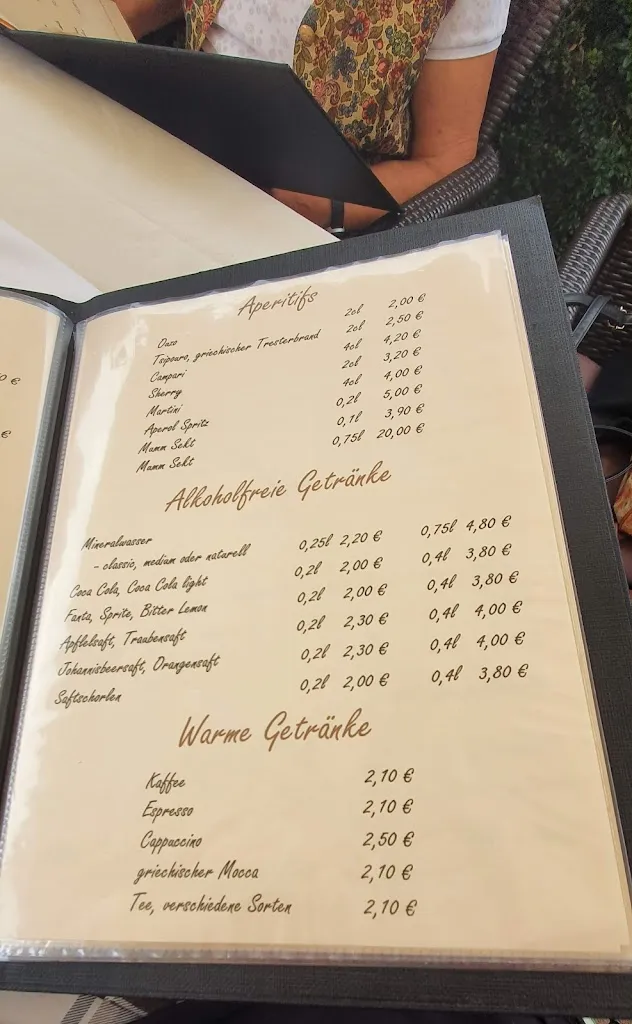 Aperitifs
Ouso 2cl 2,00 €
Tsipouro, griechischer Tresterbrand 2cl 2,50 €
Campari 4cl 4,20 €
Sherry 2cl 3,20 €
Martini 4cl 4,00 €
Aperol Spritz 0,2l 5,00 €
Mumm Sekt 0,1l 3,90 €
Mumm Sekt 0,75l 20,00 €
Alkoholfreie Getränke
Mineralwasser
- classic, medium oder naturell 0,25l 2,20 € 0,75l 4,80 €
Coca Cola, Coca Cola light 0,2l 2,00 € 0,4l 3,80 €
Fanta, Sprite, Bitter Lemon 0,2l 2,00 € 0,4l 3,80 €
Apflelsaft, Traubensaft 0,2l 2,30 € 0,4l 4,00 €
Johannisbeersaft, Orangensaft 0,2l 2,30 € 0,4l 4,00 €
Saftschorlen 0,2l 2,00 € 0,4l 3,80 €
Warme Getränke
Kaffee 2,10 €
Espresso 2,10 €
Cappuccino 2,50 €
griechischer Mocca 2,10 €
Tee, verschiedene Sorten 2,10 €